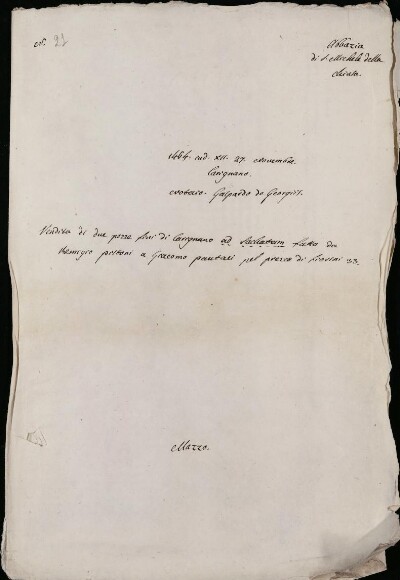 N. 21
Abbazia
di S. Michele della
Chiusa.
1464. ind. XII. 27. Novembre.
Carignano.
Notaro. Gaspardo de Georgiis.
Vendita di due pezze fini di Carignano ad fatta da
Remigio a Giacomo pel prezzo di fiorini 33.
Mazzo.